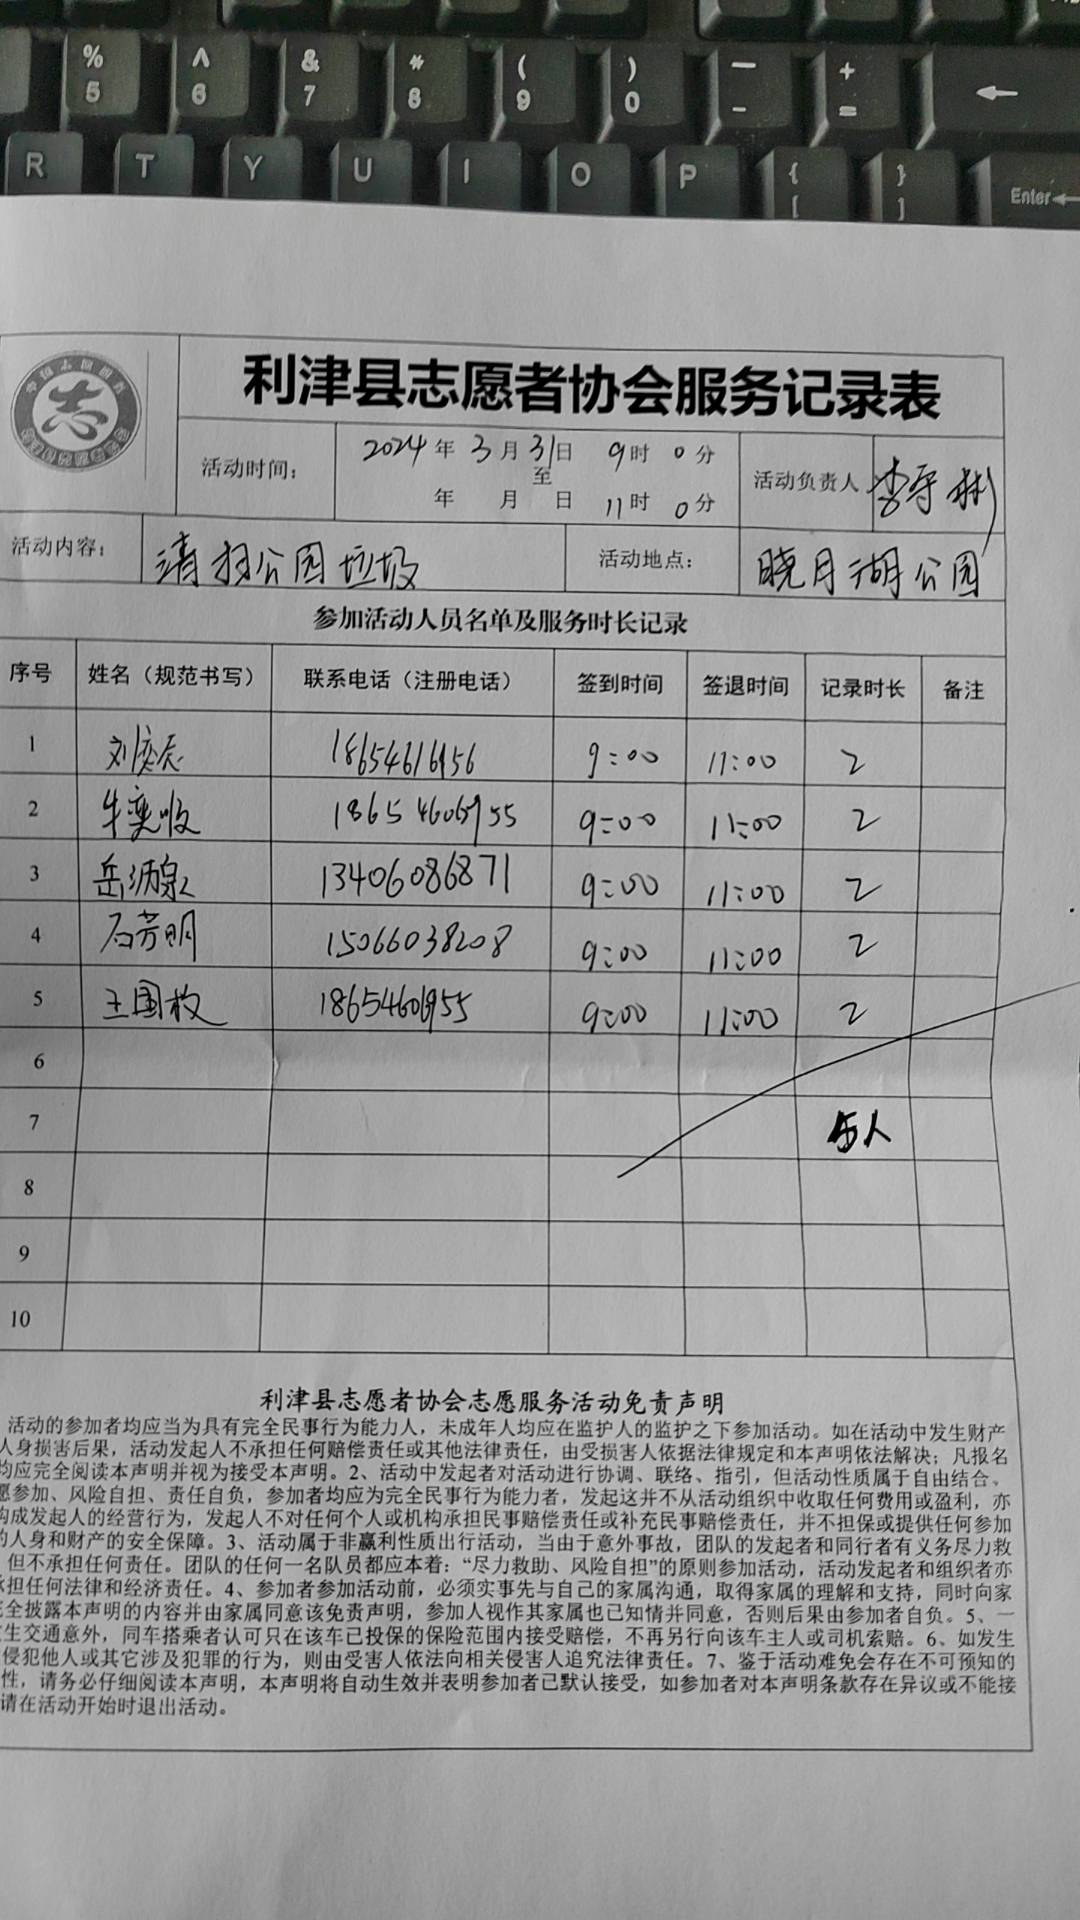 % ^ & * ( ) — +
5 6 7 8 9 0 - = ←
R T Y U I O P { }
[ ] Enter←
志
利津县志愿者协会服务记录表
活动时间: 2024年 3月 31日 9时 0分
至
年 月 日 11时 0分
活动负责人 李守彬
活动内容: 清扫公园垃圾 活动地点: 晓月湖公园
参加活动人员名单及服务时长记录
序号 姓名（规范书写） 联系电话（注册电话） 签到时间 签退时间 记录时长 备注
1 刘奕辰 18654616956 9:00 11:00 2
2 牛 9:00 11:00 2
3 岳 13406086871 9:00 11:00 2
4 石芳明 15066038208 9:00 11:00 2
5 王国枚 9:00 11:00 2
6
7 5人
8
9
10
利津县志愿者协会志愿服务活动免责声明
活动的参加者均应当为具有完全民事行为能力人，未成年人均应在监护人的监护之下参加活动。如在活动中发生财产
人身损害后果，活动发起人不承担任何赔偿责任或其他法律责任，由受损害人依据法律规定和本声明依法解决；凡报名
均应完全阅读本声明并视为接受本声明。2、活动中发起者对活动进行协调、联络、指引，但活动性质属于自由结合、
愿参加、风险自担、责任自负，参加者均应为完全民事行为能力者，发起这并不从活动组织中收取任何费用或盈利，亦
构成发起人的经营行为，发起人不对任何个人或机构承担民事赔偿责任或补充民事赔偿责任，并不担保或提供任何参加
的人身和财产的安全保障。3、活动属于非赢利性质出行活动，当由于意外事故，团队的发起者和同行者有义务尽力救
但不承担任何责任。团队的任何一名队员都应本着：“尽力救助、风险自担”的原则参加活动，活动发起者和组织者亦
承担任何法律和经济责任。4、参加者参加活动前，必须实事先与自己的家属沟通，取得家属的理解和支持，同时向家
全披露本声明的内容并由家属同意该免责声明，参加人视作其家属也已知情并同意，否则后果由参加者自负。5、一
生交通意外，同车搭乘者认可只在该车已投保的保险范围内接受赔偿，不再另行向该车主人或司机索赔。6、如发生
侵犯他人或其它涉及犯罪的行为，则由受害人依法向相关侵害人追究法律责任。7、鉴于活动难免会存在不可预知的
性，请务必仔细阅读本声明，本声明将自动生效并表明参加者已默认接受，如参加者对本声明条款存在异议或不能接
请在活动开始时退出活动。